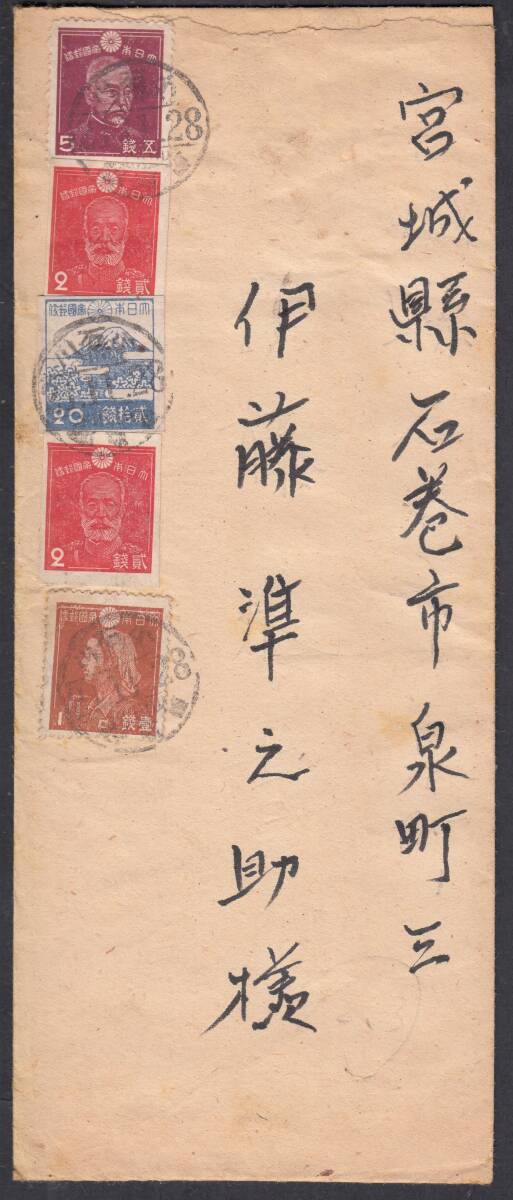 宮城縣石巻市泉町三
伊藤準之助様
便郵國帝本日大
5 錢五
便郵國帝本日大
2 錢貳
便郵國帝本日大
20 錢拾貳
便郵國帝本日大
2 錢貳
便郵國帝本日大
1 錢壹
28